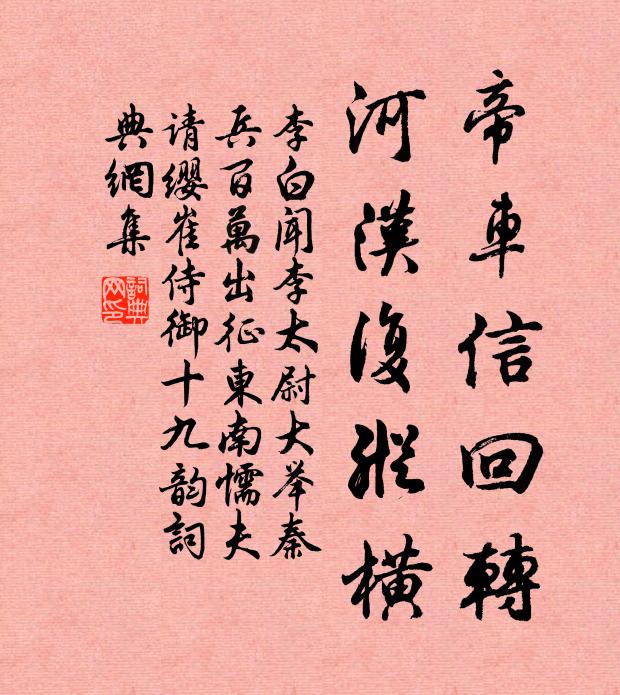 帝車信回轉
河漢復縱橫
李白闻李太尉大举秦
兵百萬出征東南懦夫
请缨崔侍御十九韵詞
典網集
詞典
网印